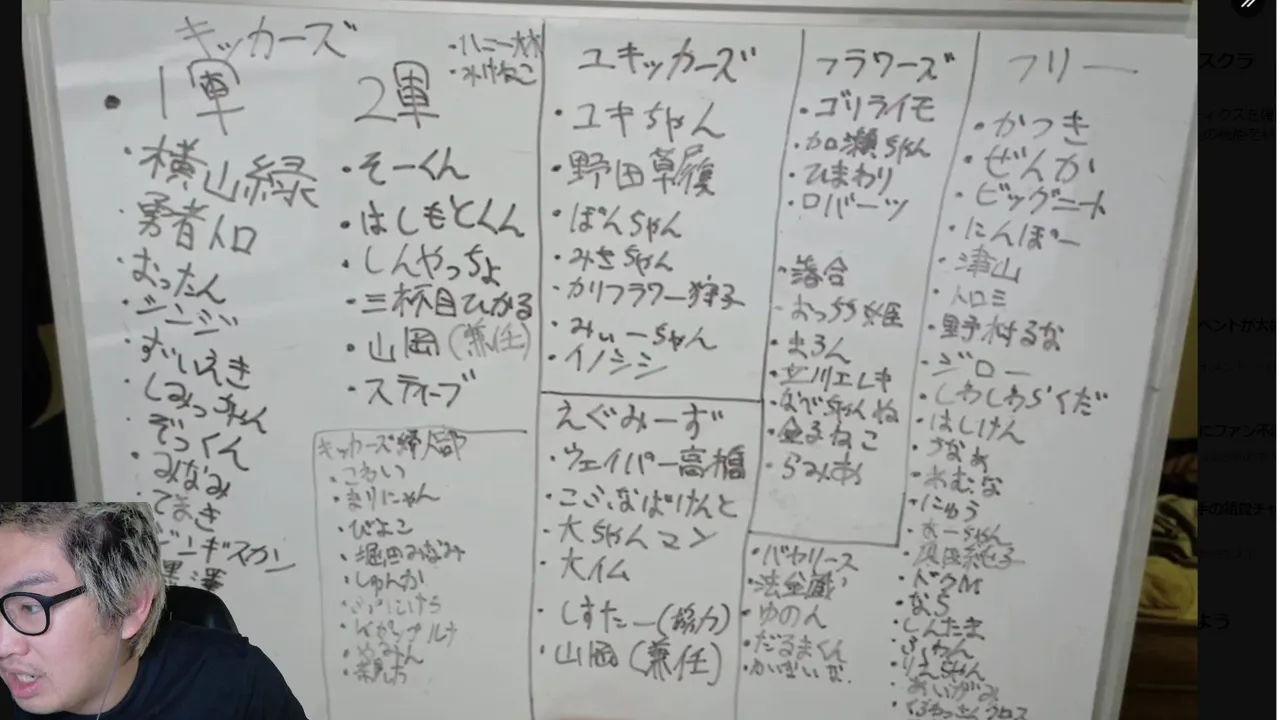 キッカーズ
1軍
・横山緑
・勇者トロ
・おったん
・シンジ
・ずいえき
・しみっちゃん
・ぞっくん
・みなみ
・てまき
ジンギスカン
黒澤
2軍
・ハニー大木
・みけねこ
・そーくん
・はしもとくん
・しんやっちょ
・三杯目ひかる
・山岡(兼任)
・スティーブ
キッカーズ婦人部
・こわい
・まりにゃん
・ぴよこ
・堀田みなみ
・しゅんか
ユキッカーズ
・ユキちゃん
・野田草履
・ぽんちゃん
・みさちゃん
・カリフラワー狩子
・みぃーちゃん
・イノシシ
えぐみーず
・ウェイパー高橋
・こぶなばけんと
・大ちゃんマン
・大イム
・しすたー(協力)
・山岡(兼任)
フラワーズ
・ゴリライモ
・加瀬ちゃん
・ひまわり
・ロバーツ
・落合
・おっちち姫
・まろん
・立川エレキ
・なでちゃんね
・金るねこ
・らみあ
・バヤリース
・法金蔵
・ゆのん
・だるまくん
フリー
・かつき
・ぜんか
・ビッグニート
・にんぽー
・津山
・トロミ
・野村るな
・ジロー
・しわしわらくだ
・はしけん
・うなぁ
・おむな
・にゅう
・大一ちゃん
・ドクM
・なら
・しんたま
・ふわん
・りょちゃん
・あいがみ
スクラ
よう